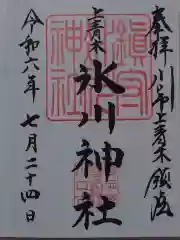 奉拝 川口市上青木鎮座
鎮守
上青木
氷川神社
神社
令和六年 七月二十四日